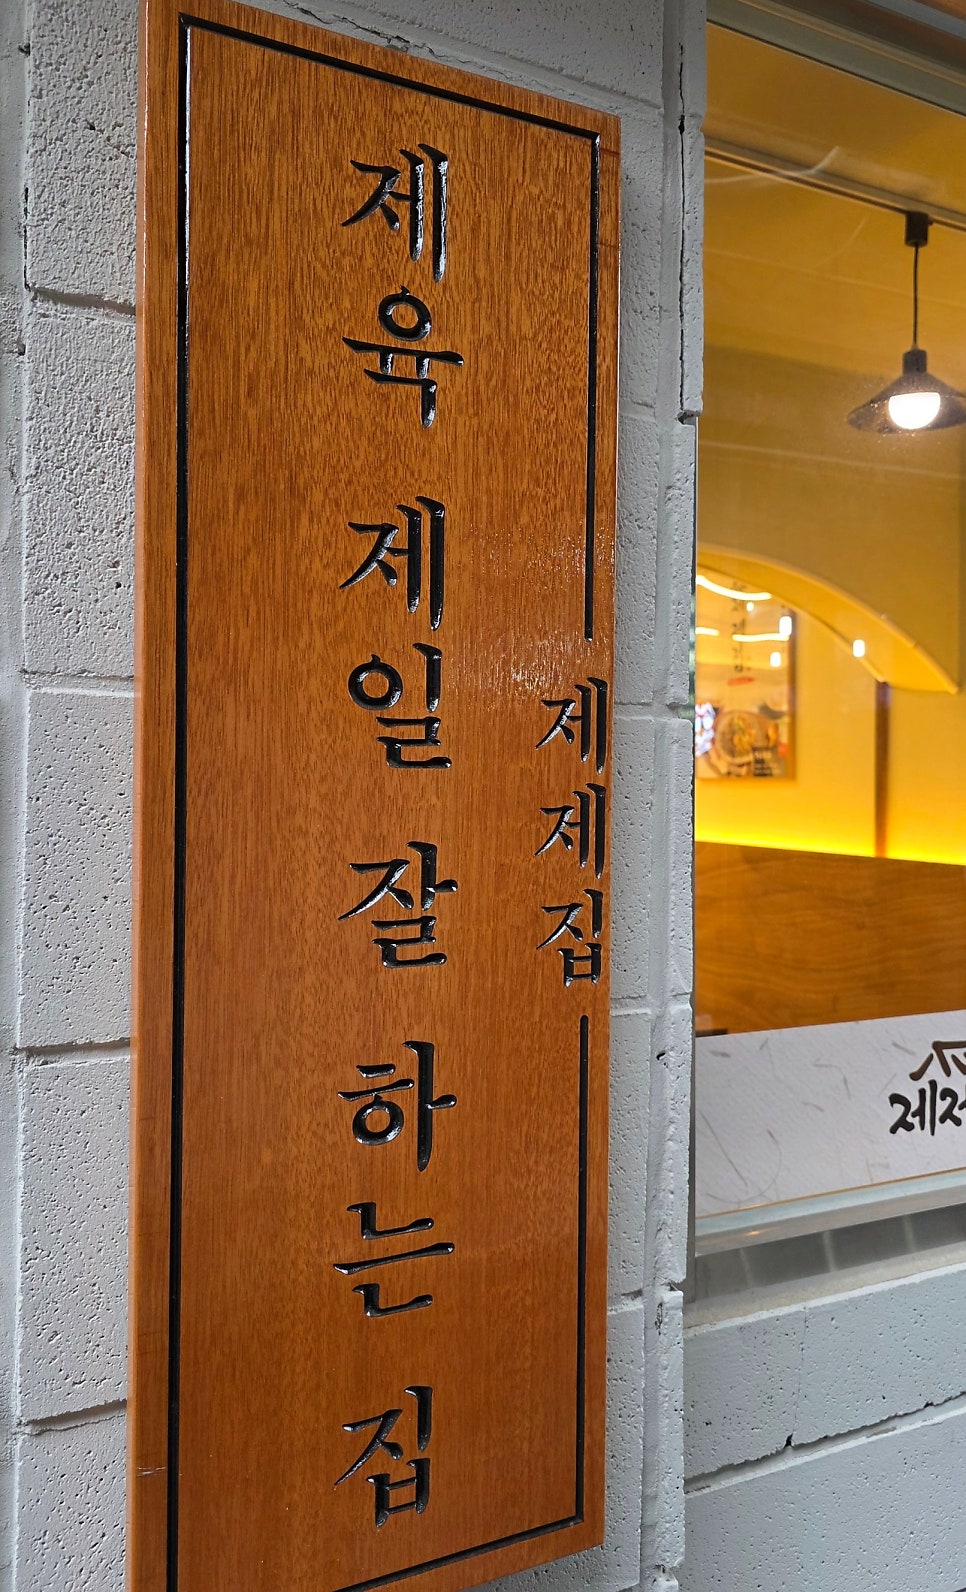 제육 제일 잘 하는 집
제제집